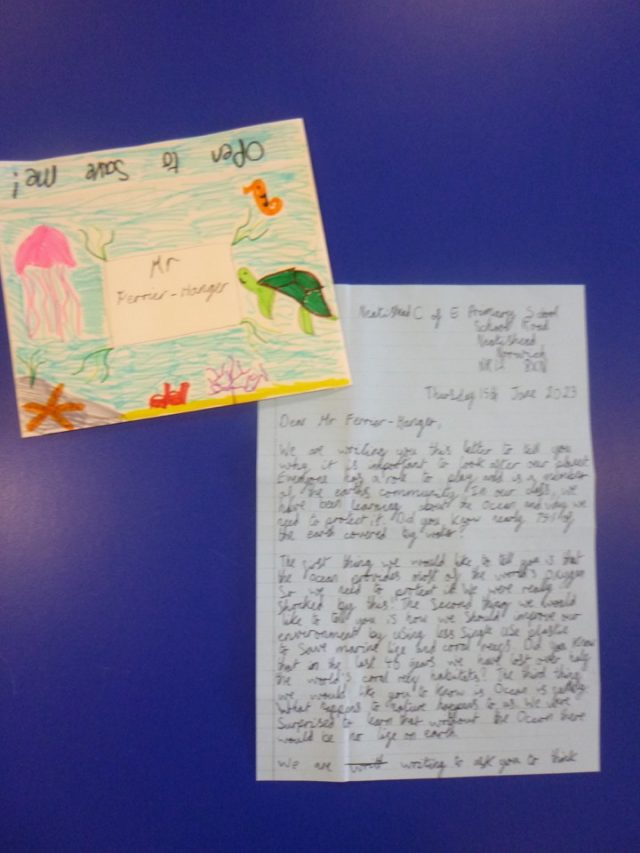 Open to save me!
Mr
Ferrier-Hanger
Neatishead C of E Primary School
School Road
Neatishead
Norwich
NR12 8XN
Thursday 15th June 2023
Dear Mr Ferrier-Hanger,
We are writing you this letter to tell you
why it is important to look after our planet.
Everyone has a role to play and is a member
of the earths community. In our class, we
have been learning about the Ocean and why we
need to protect it. Did you know nearly 75% of
the earth covered by water?
The first thing we would like to tell you is that
the Ocean provides most of the world's oxygen
So we need to protect it. We were really
shocked by this! The Second thing we would
like to tell you is how we should improve our
environment by using less Single use plastic
to Save marine life and coral reefs. Did you know
that in the last 40 years we have lost over half
the world's coral reef habitats? The third thing
we would like you to know is Ocean is
What happens to nature happens to us. We were
Surprised to learn that without the Ocean there
would be no life on earth.
We are writing to ask you to think